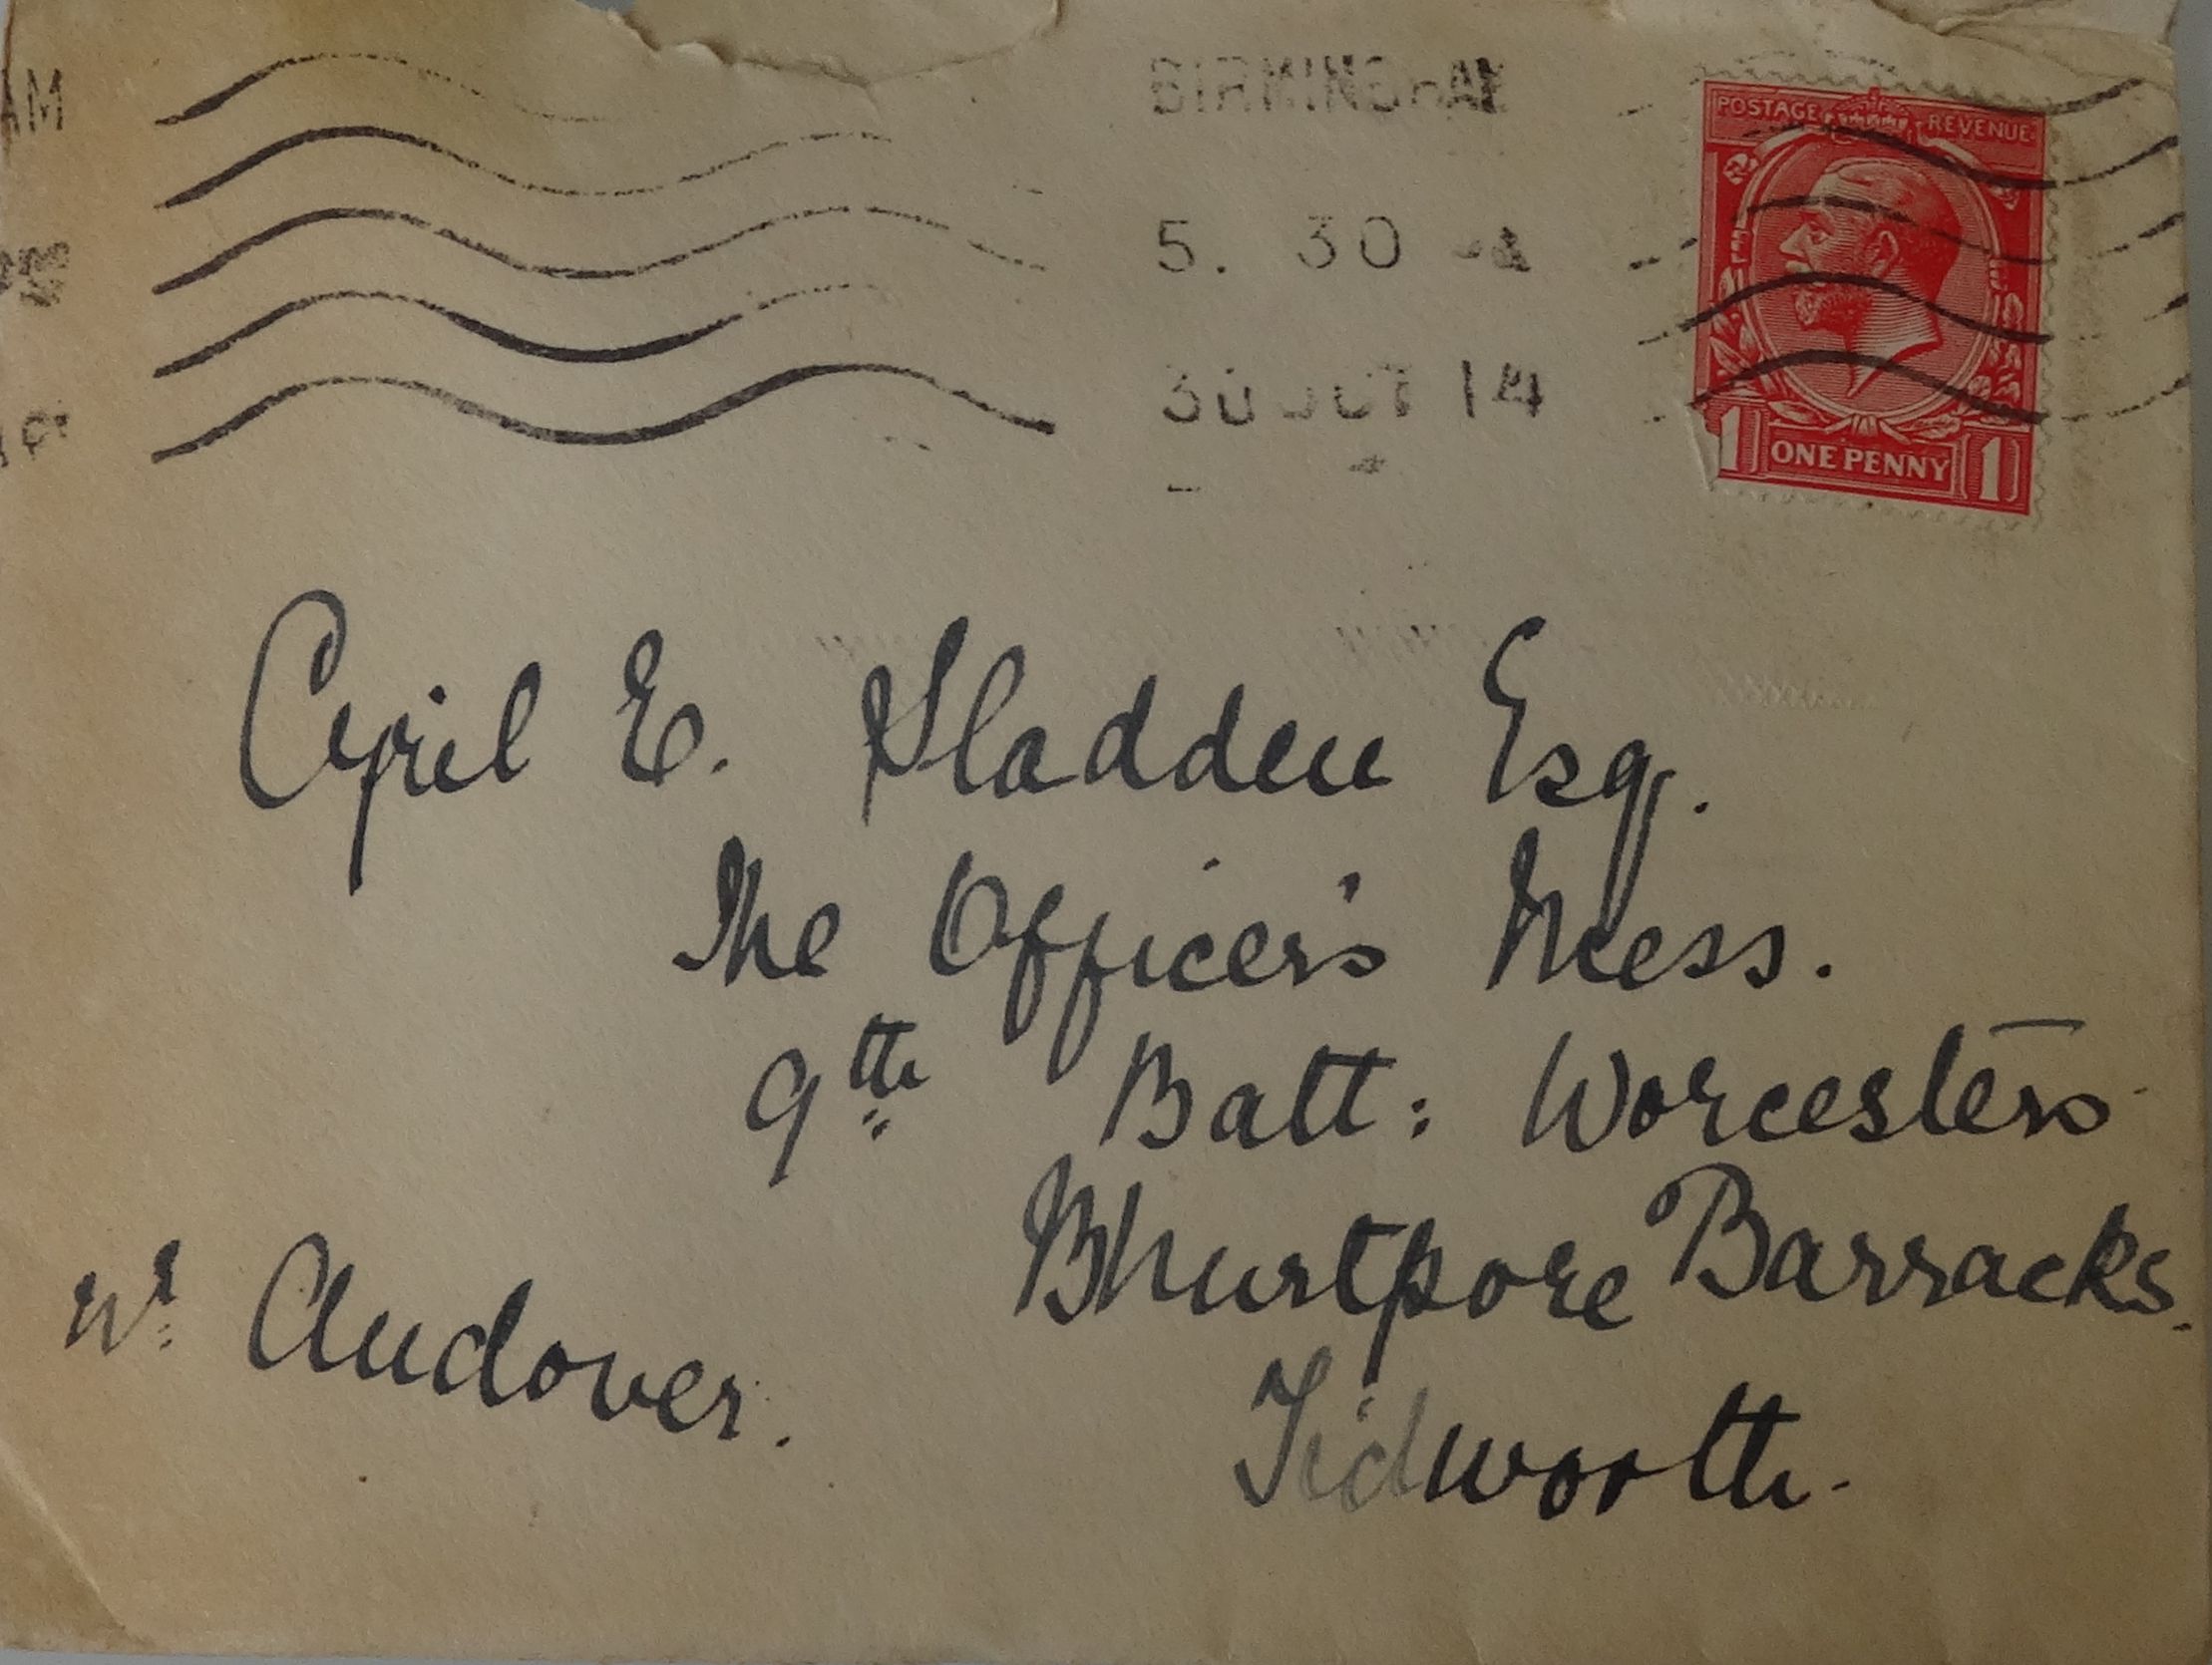 AM
BIRMINGHAM
5. 30
30 OCT 14
POSTAGE REVENUE
1 ONE PENNY 1
Cyril E. Sladden Esq.
The Officer's Mess.
9th Batt: Worcesters
Bhurtpore Barracks.
Tidworth.
Nr Andover.